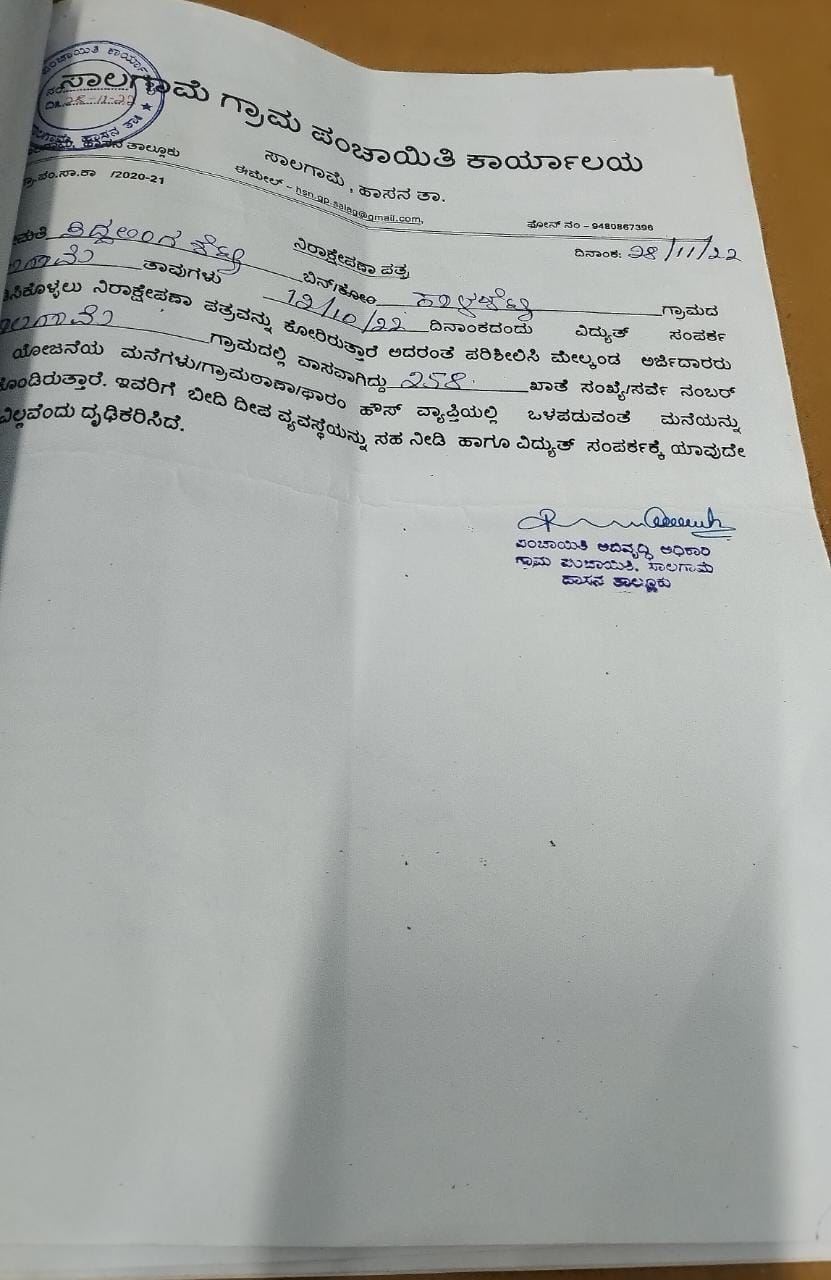 ಪಂಚಾಯಿತಿ ಕಾರ್ಯಾ
ಸಾಲಗಾಮೆ ಗ್ರಾಮ ಪಂಚಾಯಿತಿ ಕಾರ್ಯಾಲಯ
ಹಾಸನ ತಾಲ್ಲೂಕು
ಸಾಲಗಾಮೆ, ಹಾಸನ ತಾ.
ಗ್ರಾ.ಪಂ.ಸಾ.ಕಾ /2020-21
ಈಮೇಲ್ - hsn.gp.salag@gmail.com,
ಫೋನ್ ನಂ - 9480867396
ದಿನಾಂಕ: 28/11/22
ನಿರಾಕ್ಷೇಪಣಾ ಪತ್ರ
ಮತಿ ಬಿನ್/ಕೋಂ ಗ್ರಾಮದ
ತಾವುಗಳು 12/10/22 ದಿನಾಂಕದಂದು ವಿದ್ಯುತ್ ಸಂಪರ್ಕ
ಸಿಕೊಳ್ಳಲು ನಿರಾಕ್ಷೇಪಣಾ ಪತ್ರವನ್ನು ಕೋರಿರುತ್ತಾರೆ ಅದರಂತೆ ಪರಿಶೀಲಿಸಿ ಮೇಲ್ಕಂಡ ಅರ್ಜಿದಾರರು
ಗ್ರಾಮದಲ್ಲಿ ವಾಸವಾಗಿದ್ದು 258 ಖಾತೆ ಸಂಖ್ಯೆ/ಸರ್ವೆ ನಂಬರ್
ಯೋಜನೆಯ ಮನೆಗಳು/ಗ್ರಾಮಠಾಣಾ/ಫಾರಂ ಹೌಸ್ ವ್ಯಾಪ್ತಿಯಲ್ಲಿ ಒಳಪಡುವಂತೆ ಮನೆಯನ್ನು
ಕೊಂಡಿರುತ್ತಾರೆ. ಇವರಿಗೆ ಬೀದಿ ದೀಪ ವ್ಯವಸ್ಥೆಯನ್ನು ಸಹ ನೀಡಿ ಹಾಗೂ ವಿದ್ಯುತ್ ಸಂಪರ್ಕಕ್ಕೆ ಯಾವುದೇ
ವಿಲ್ಲವೆಂದು ದೃಢಿಕರಿಸಿದೆ.
ಪಂಚಾಯಿತಿ ಅಭಿವೃದ್ಧಿ ಅಧಿಕಾರಿ
ಗ್ರಾಮ ಪಂಚಾಯಿತಿ, ಸಾಲಗಾಮೆ
ಹಾಸನ ತಾಲ್ಲೂಕು